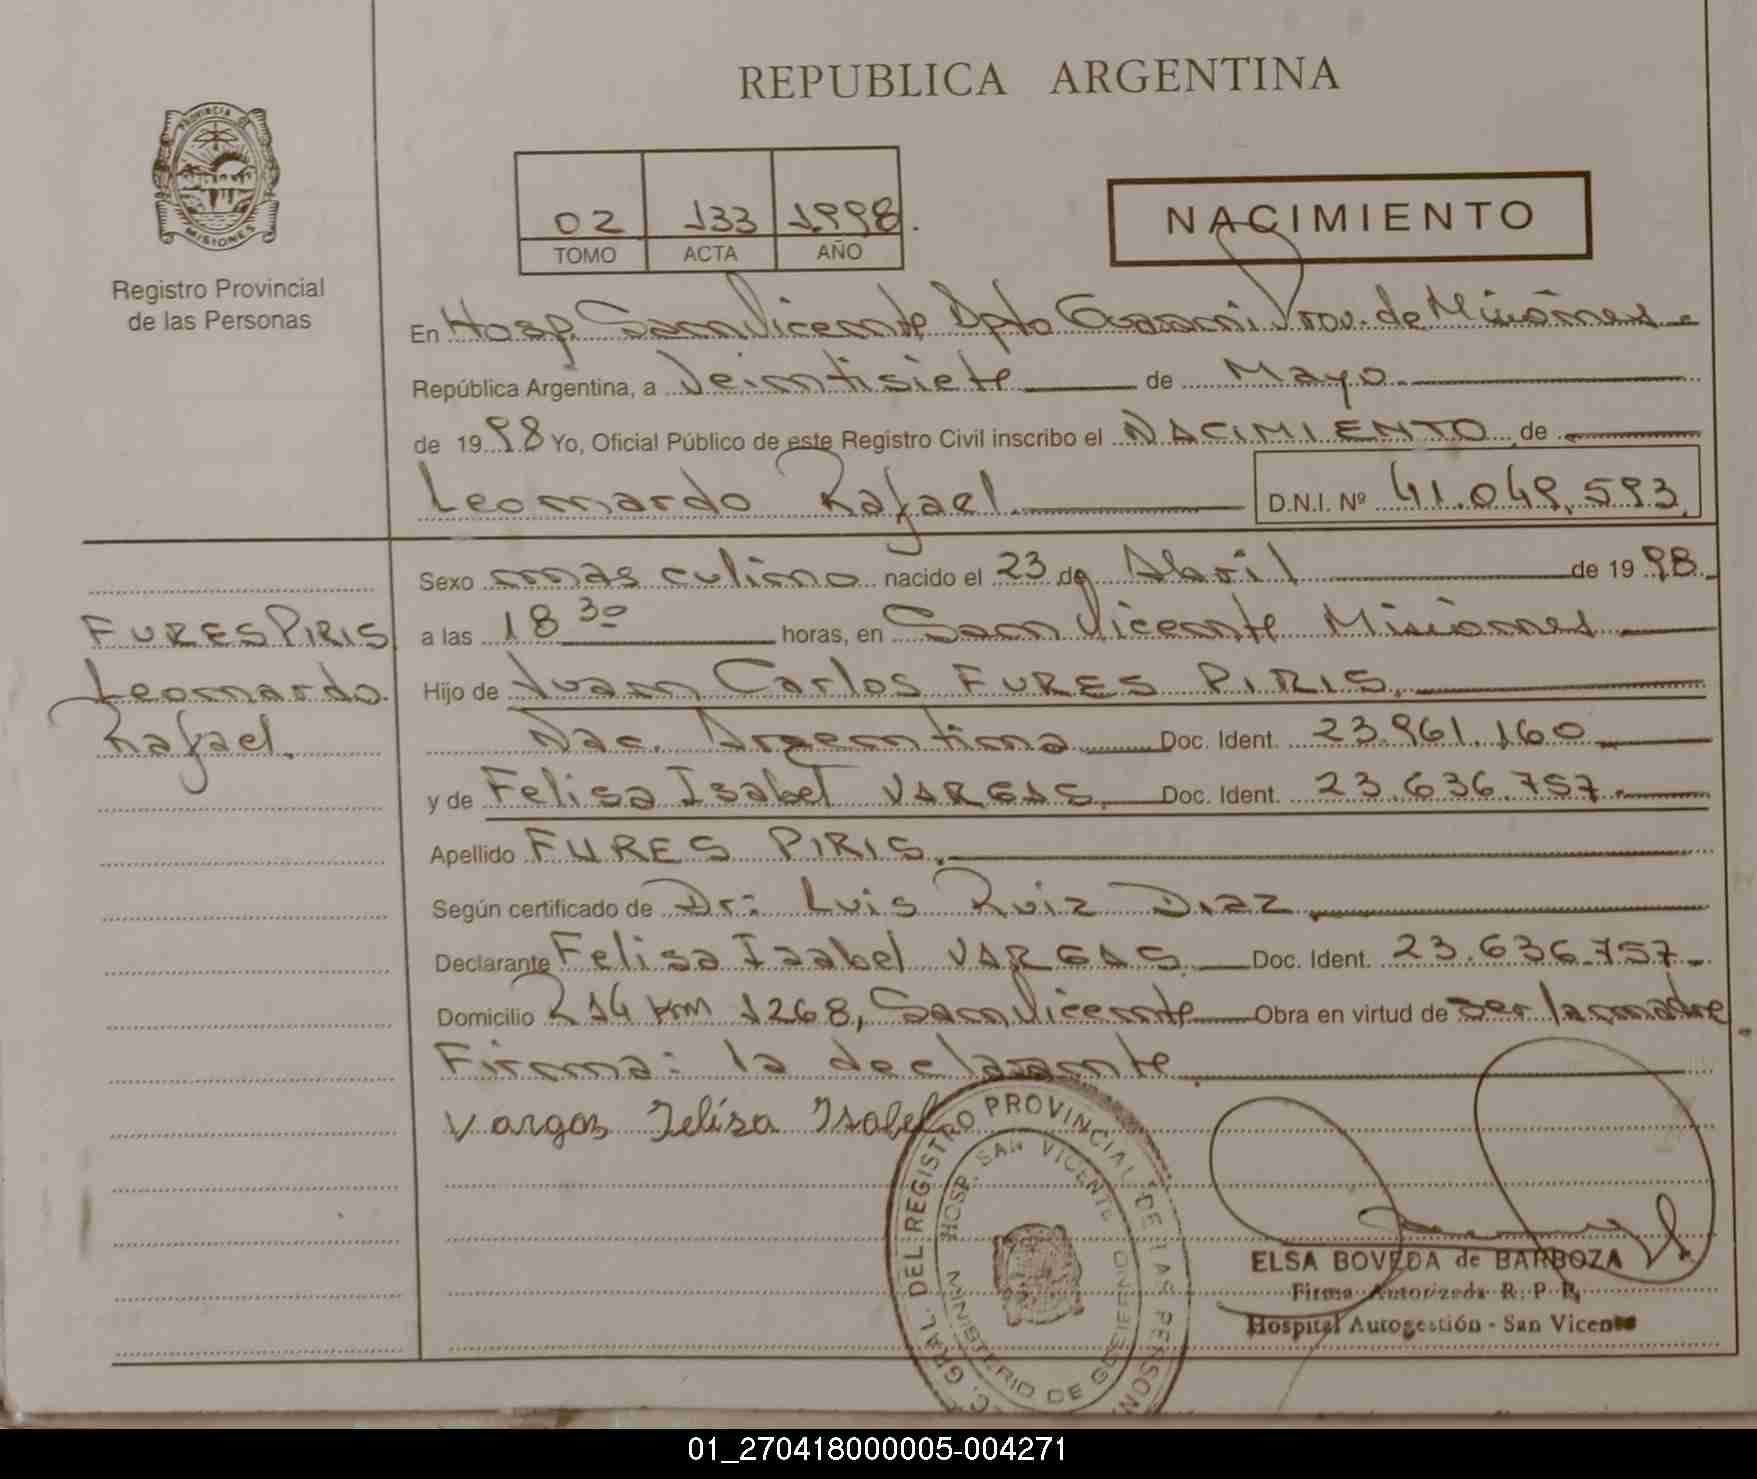 REPUBLICA ARGENTINA
PROVINCIA DE
MISIONES
Registro Provincial
de las Personas
02 133 1998.
TOMO ACTA AÑO
NACIMIENTO
En Hosp. San Vicente Dpto Guarani Prov. de Misiones
República Argentina, a Veintisiete de Mayo
de 1998 Yo, Oficial Público de este Registro Civil inscribo el NACIMIENTO de
Leonardo Rafael D.N.I. Nº 41.049.593
FURES PIRIS
Leonardo
Rafael.
Sexo masculino nacido el 23 de Abril de 1998.
a las 18 30 horas, en San Vicente Misiones
Hijo de Juan Carlos FURES PIRIS.
Nac. Argentina Doc. Ident. 23.961.160
y de Felisa Isabel VARGAS. Doc. Ident. 23.636.757.
Apellido FURES PIRIS.
Según certificado de Dr: Luis Ruiz DIAZ.
Declarante Felisa Isabel VARGAS Doc. Ident. 23.636.757.
Domicilio R 14 Km 1268, San Vicente Obra en virtud de ser la madre.
Firma: la declarante
Vargas Felisa Isabel
GRAL. DEL REGISTRO PROVINCIAL DE LAS PERSON
HOSP. SAN VICENTE
MINISTERIO DE GOBIERNO
ELSA BOVEDA de BARBOZA
Firma Autorizada R. P. P.
Hospital Autogestión - San Vicente
01_270418000005-004271